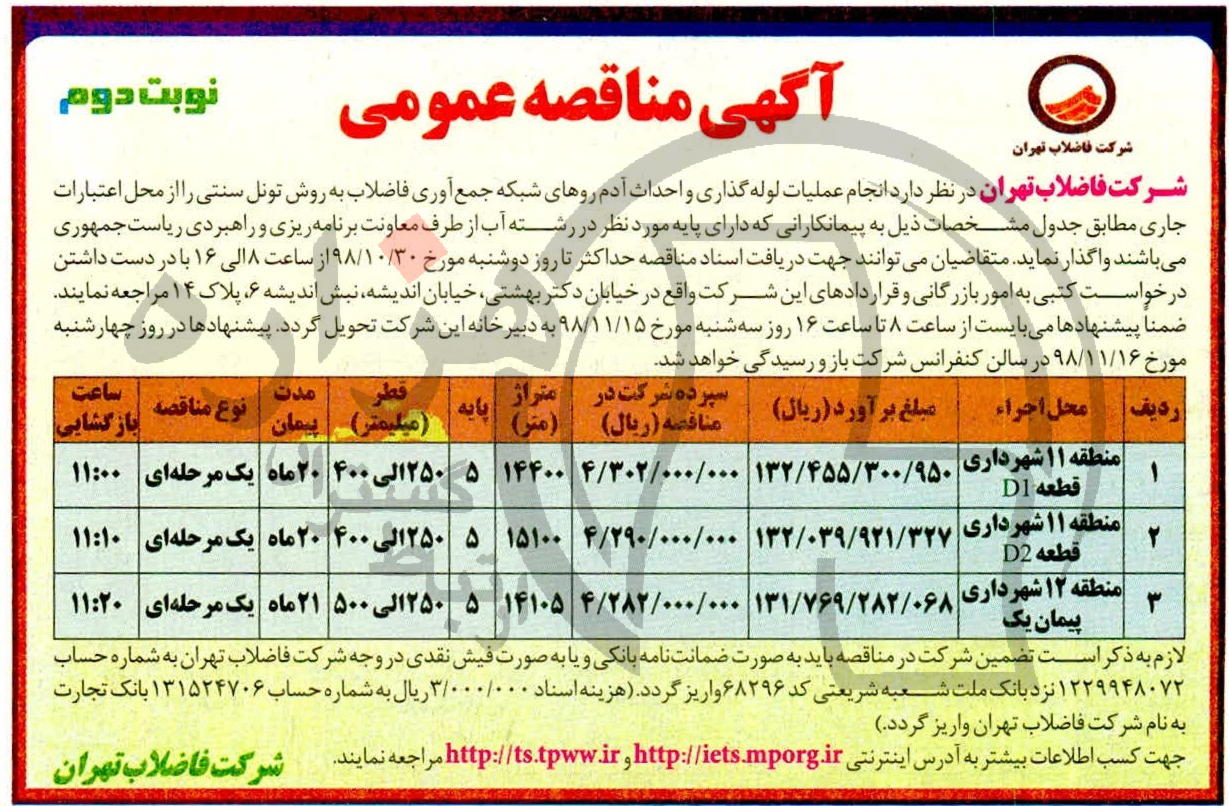 نوبت دوم
آگهی مناقصه عمومی
شرکت فاضلاب تهران
شرکت فاضلاب تهران در نظر دارد انجام عملیات لوله گذاری و احداث آدم روهای شبکه جمع آوری فاضلاب به روش تونل سنتی را از محل اعتبارات
جاری مطابق جدول مشخصات ذیل به پیمانکارانی که دارای پایه مورد نظر در رشته آب از طرف معاونت برنامه ریزی و راهبردی ریاست جمهوری
می باشند واگذار نماید. متقاضیان می توانند جهت دریافت اسناد مناقصه حداکثر تا روز دوشنبه مورخ ۹۸/۱۰/۳۰ از ساعت ۸ الی ۱۶ با در دست داشتن
درخواست کتبی به امور بازرگانی و قراردادهای این شرکت واقع در خیابان دکتر بهشتی، خیابان اندیشه، نبش اندیشه ۶، پلاک ۱۴ مراجعه نمایند.
ضمناً پیشنهادها می بایست از ساعت ۸ تا ساعت ۱۶ روز سه شنبه مورخ ۹۸/۱۱/۱۵ به دبیرخانه این شرکت تحویل گردد. پیشنهادها در روز چهارشنبه
مورخ ۹۸/۱۱/۱۶ در سالن کنفرانس شرکت باز و رسیدگی خواهد شد.
ردیف محل اجراء مبلغ برآورد (ریال) سپرده شرکت در مناقصه (ریال) متراژ (متر) پایه قطر (میلیمتر) مدت پیمان نوع مناقصه ساعت بازگشایی
۱ منطقه ۱۱ شهرداری قطعه D1 ۱۳۲/۴۵۵/۳۰۰/۹۵۰ ۴/۳۰۲/۰۰۰/۰۰۰ ۱۴۴۰۰ ۵ ۲۵۰ الی ۴۰۰ ۲۰ ماه یک مرحله ای ۱۱:۰۰
۲ منطقه ۱۱ شهرداری قطعه D2 ۱۳۲/۰۳۹/۹۲۱/۳۲۷ ۴/۲۹۰/۰۰۰/۰۰۰ ۱۵۱۰۰ ۵ ۲۵۰ الی ۴۰۰ ۲۰ ماه یک مرحله ای ۱۱:۱۰
۳ منطقه ۱۲ شهرداری پیمان یک ۱۳۱/۷۶۹/۲۸۲/۰۶۸ ۴/۲۸۲/۰۰۰/۰۰۰ ۱۴۱۰۵ ۵ ۲۵۰ الی ۵۰۰ ۲۱ ماه یک مرحله ای ۱۱:۲۰
لازم به ذکر است تضمین شرکت در مناقصه باید به صورت ضمانت نامه بانکی و یا به صورت فیش نقدی در وجه شرکت فاضلاب تهران به شماره حساب
۱۲۲۹۹۴۸۰۷۲ نزد بانک ملت شعبه شریعتی کد ۶۸۲۹۶ واریز گردد. (هزینه اسناد ۳/۰۰۰/۰۰۰ ریال به شماره حساب ۱۳۱۵۲۴۷۰۶ بانک تجارت
به نام شرکت فاضلاب تهران واریز گردد.)
جهت کسب اطلاعات بیشتر به آدرس اینترنتی http://iets.mporg.ir و http://ts.tpww.ir مراجعه نمایند.
شرکت فاضلاب تهران
هزاره
گستران
ارتباط